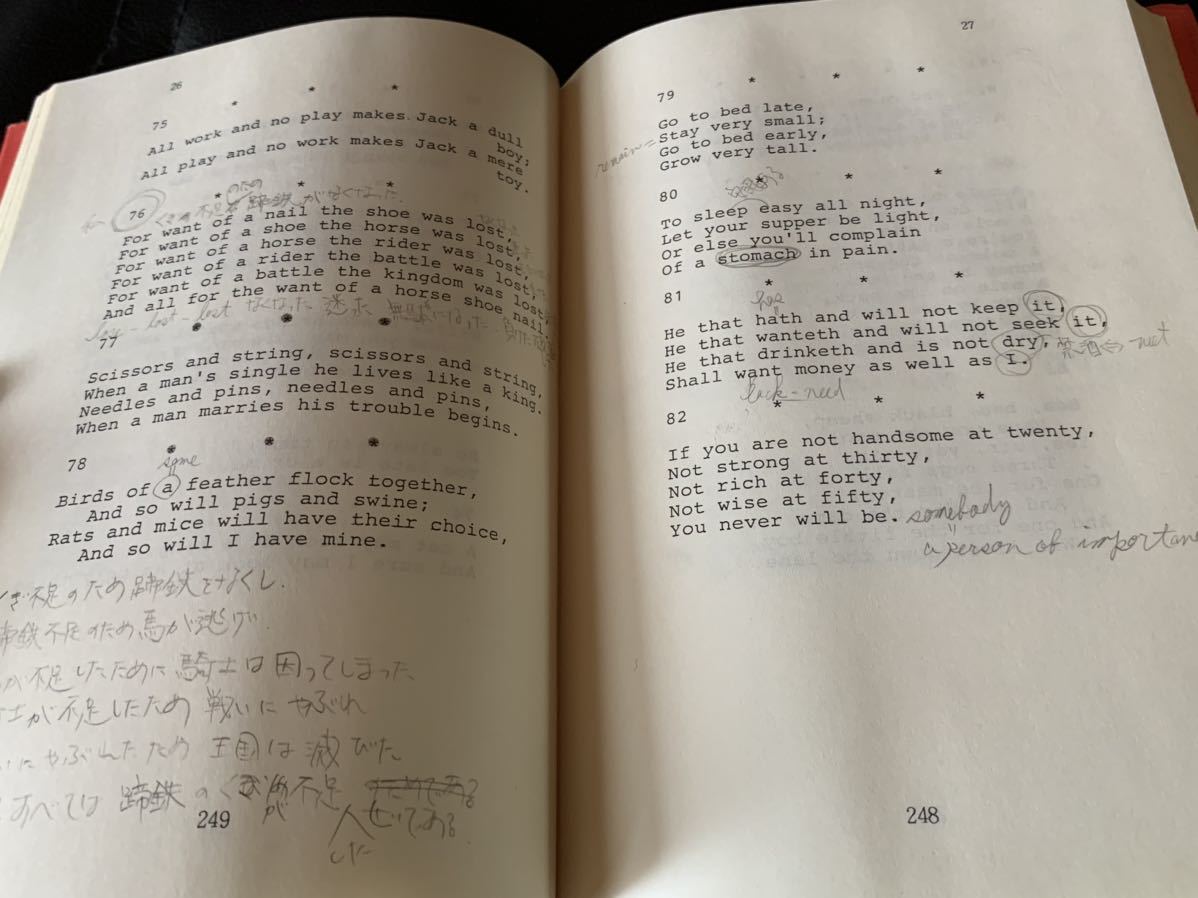 26
* * *
75
All work and no play makes Jack a dull
boy;
All play and no work makes Jack a mere
toy.
* * *
のため
76
くぎの不足 蹄鉄がなくなった.
For want of a nail the shoe was lost,
For want of a shoe the horse was lost,
For want of a horse the rider was lost,
For want of a rider the battle was lost,
For want of a battle the kingdom was lost,
And all for the want of a horse shoe nail.
lost - lost なくなった
* * *
77
Scissors and string, scissors and string,
When a man's single he lives like a king.
Needles and pins, needles and pins,
When a man marries his trouble begins.
* * *
78
same
Birds of a feather flock together,
And so will pigs and swine;
Rats and mice will have their choice,
And so will I have mine.
ぎ不足のため蹄鉄をなくし.
蹄鉄不足のため馬が逃げ.
が不足したために騎士は困ってしまった
士が不足したため 戦いに やぶれ
いにやぶれたため 王国は滅びた
すべては 蹄鉄のくぎ 不足
が
人 せいである
した
249
27
* * *
79
Go to bed late,
remain = Stay very small;
Go to bed early,
Grow very tall.
* * *
80
To sleep easy all night,
Let your supper be light,
Or else you'll complain
Of a stomach in pain.
* * *
81
has
He that hath and will not keep it,
He that wanteth and will not seek it,
He that drinketh and is not dry, 禁酒 ⇔ wet
Shall want money as well as I.
lack - need
* * *
82
If you are not handsome at twenty,
Not strong at thirty,
Not rich at forty,
Not wise at fifty,
You never will be. somebody
a person of importan
248